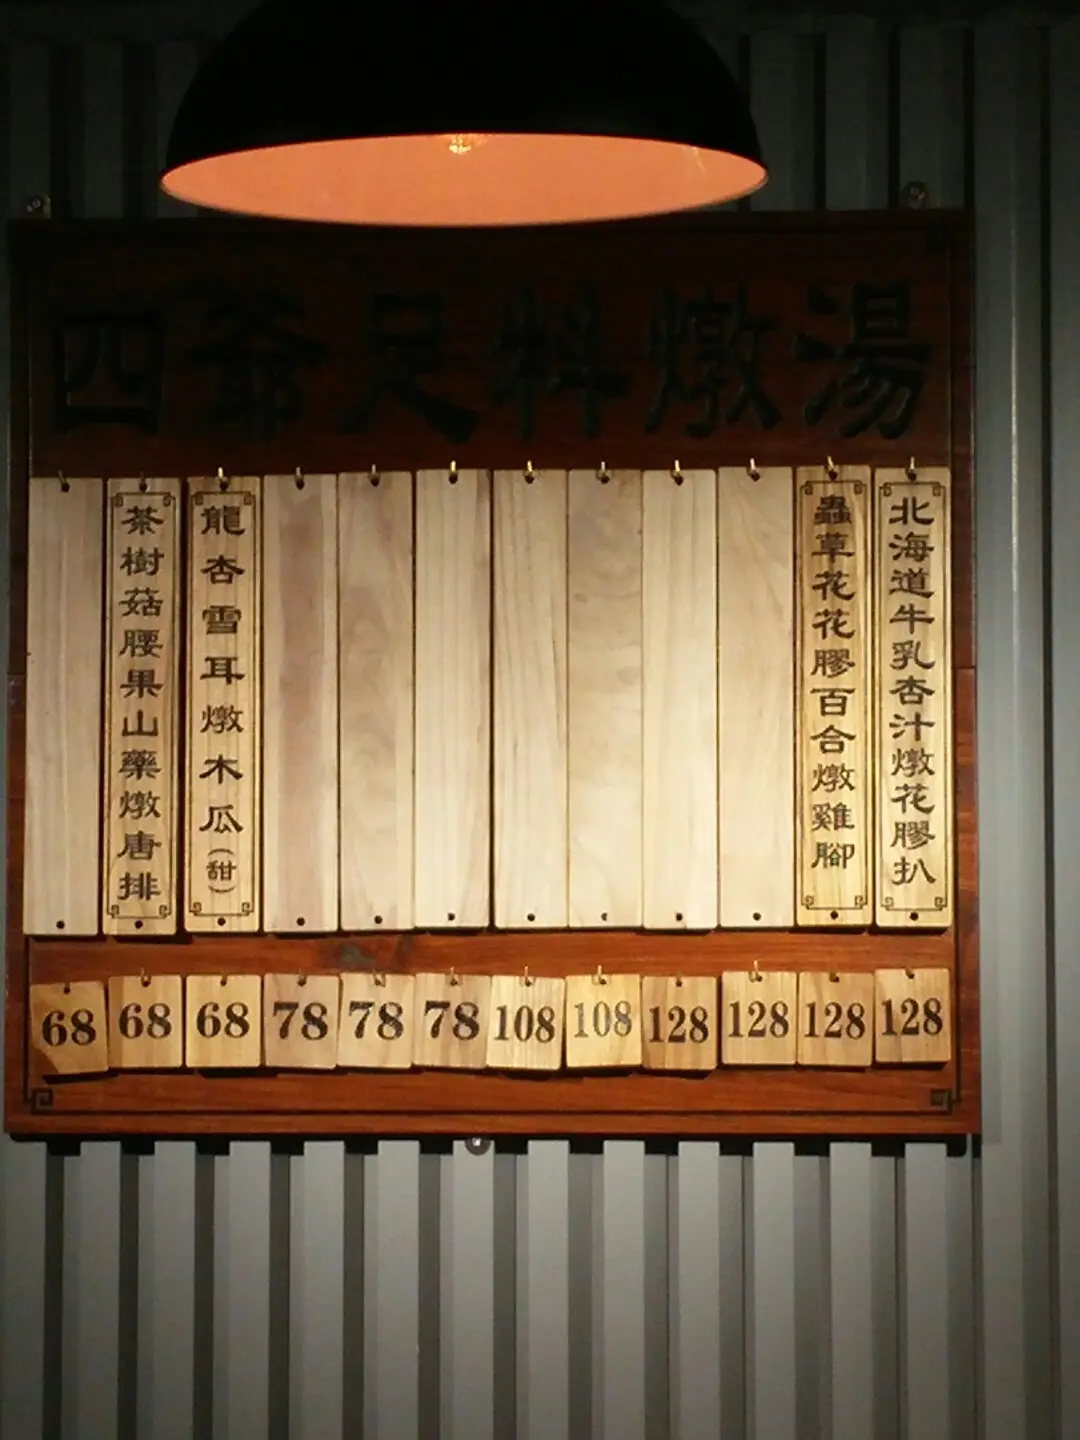 四爺足料燉湯
北海道牛乳杏汁燉花膠扒
蟲草花花膠百合燉雞腳
龍杏雪耳燉木瓜(甜)
茶樹菇腰果山藥燉唐排
68 68 68 78 78 78 108 108 128 128 128 128